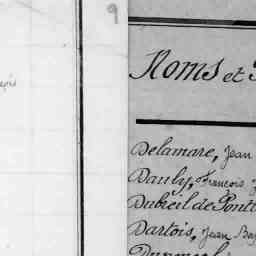 9
Noms et
Delamare, Jean
Dauly, François
Dubreil de Pont
Dartois, Jean Bap